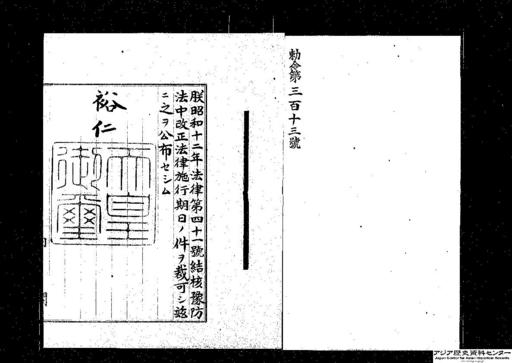 勅令第三百十三號
朕昭和十二年法律第四十一號結核豫防
法中改正法律施行期日ノ件ヲ裁可シ玆
ニ之ヲ公布セシム
裕仁
天皇
御璽
アジア歴史資料センター
Japan Center for Asian Historical Records